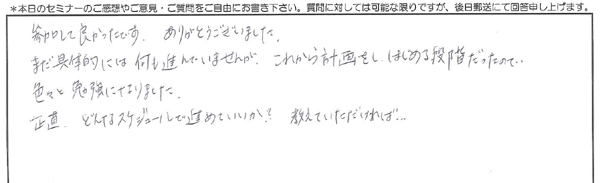 *本日のセミナーのご感想やご意見・ご質問をご自由にお書き下さい。質問に対しては可能な限りですが、後日郵送にて回答申し上げます。
参加して良かったです。ありがとうございました。
まだ具体的には何も進んでいませんが、これから計画をしはじめる段階だったので、
色々と勉強になりました。
正直、どんなスケジュールで進めていいか？教えていただければ…